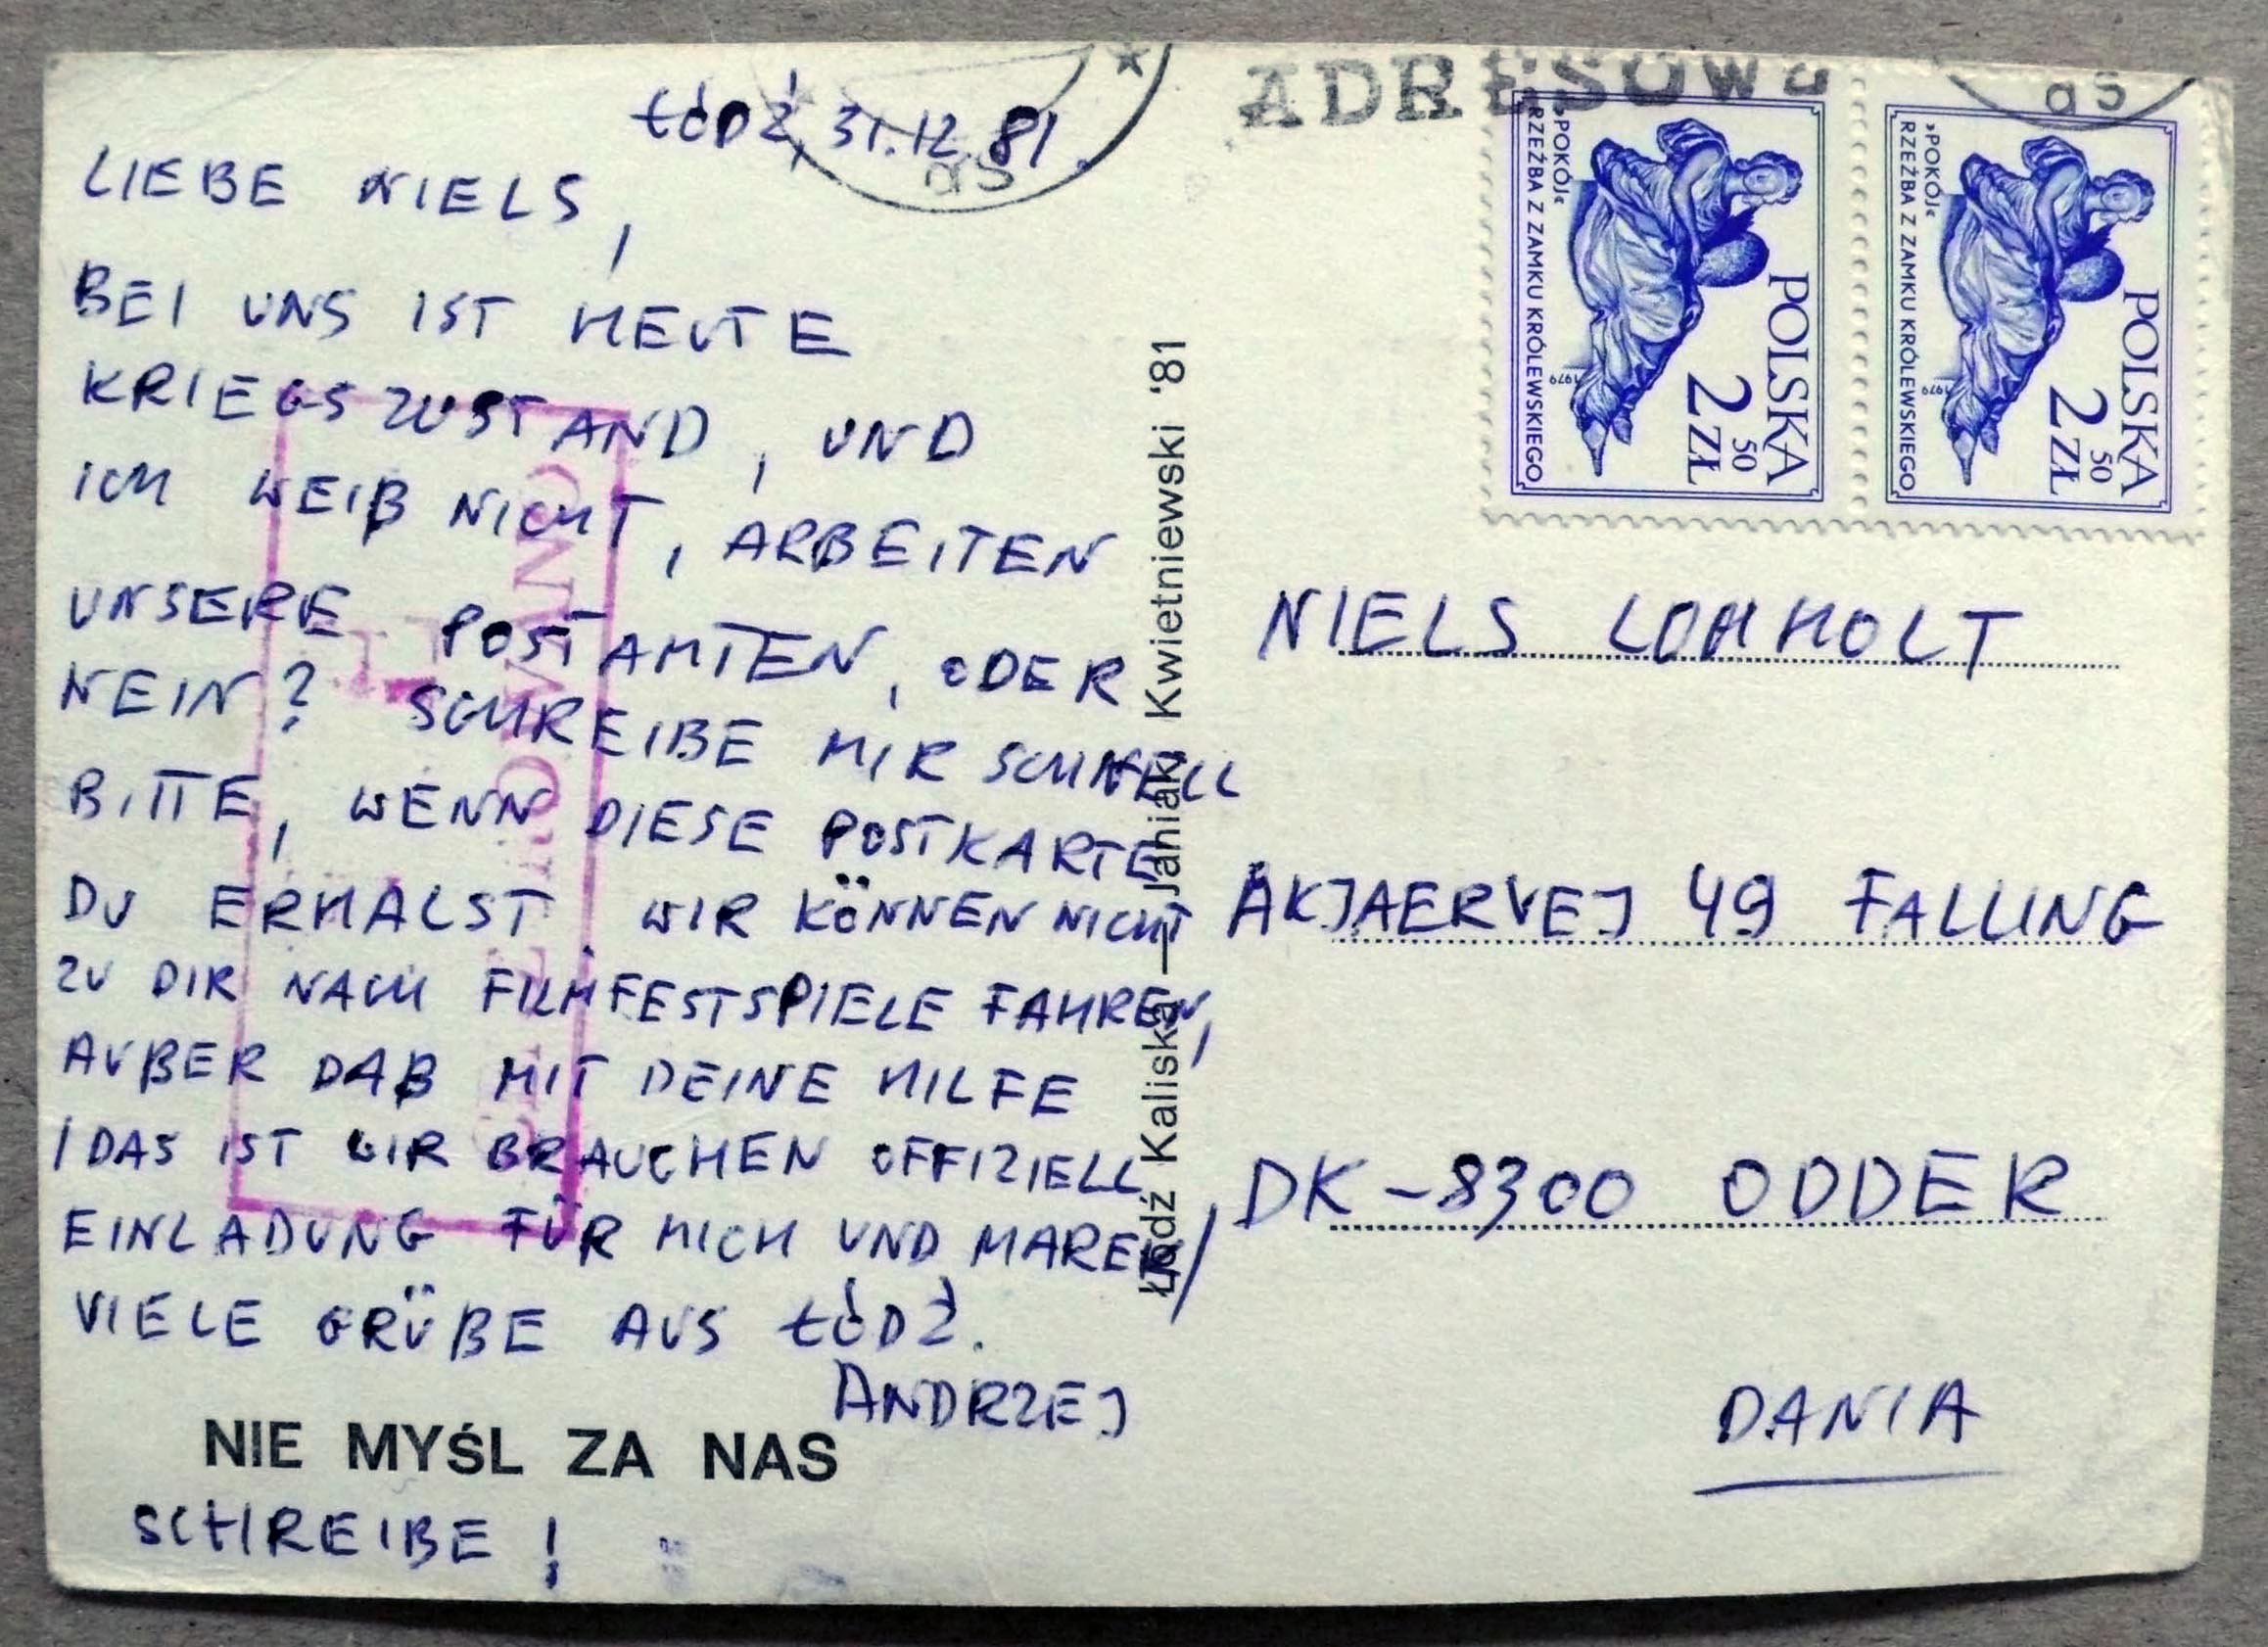 ŁÓDŹ, 31.12.81.
LIEBE NIELS,
BEI UNS IST HEUTE
KRIEGSZUSTAND, UND
ICH WEIß NICHT, ARBEITEN
UNSERE POSTAMTEN, ODER
NEIN? SCHREIBE MIR SCHNELL
BITTE, WENN DIESE POSTKARTE
DU ERHALST. WIR KÖNNEN NICHT
ZU DIR NACH FILMFESTSPIELE FAHREN,
AUßER DAß MIT DEINE HILFE
/DAS IST WIR BRAUCHEN OFFIZIELL
EINLADUNG FÜR MICH UND MAREK/
VIELE GRÜßE AUS ŁÓDŹ.
ANDRZEJ
NIE MYŚL ZA NAS
SCHREIBE!
Łódź Kaliska — Janiak, Kwietniewski '81
ADRESOWE
as
as
»POKÓJ«
RZEŹBA Z ZAMKU KRÓLEWSKIEGO
1979
POLSKA
2 50 ZŁ
»POKÓJ«
RZEŹBA Z ZAMKU KRÓLEWSKIEGO
1979
POLSKA
2 50 ZŁ
NIELS LOMHOLT
ÅKJAERVEJ 49 FALLING
DK-8300 ODDER
DANIA